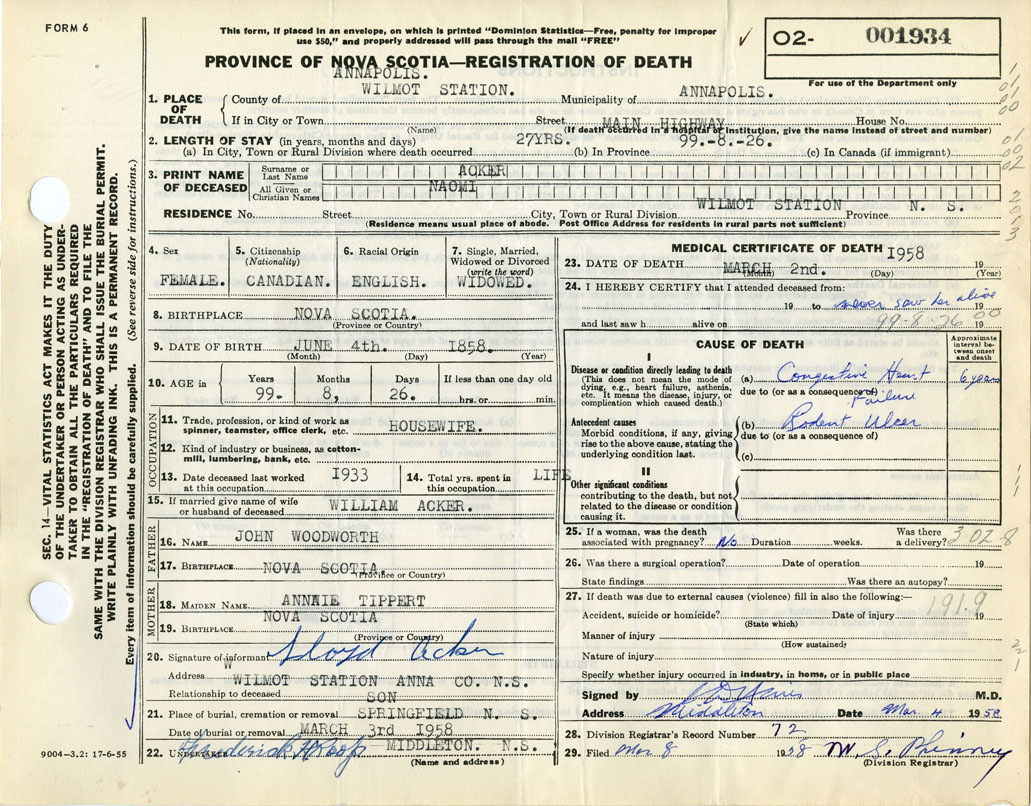 FORM 6
This form, if placed in an envelope, on which is printed "Dominion Statistics—Free, penalty for improper
use $50," and properly addressed will pass through the mail "FREE"
✓
O2- 001934
For use of the Department only
PROVINCE OF NOVA SCOTIA—REGISTRATION OF DEATH
1. PLACE OF DEATH
County of ANNAPOLIS. Municipality of ANNAPOLIS.
WILMOT STATION.
If in City or Town (Name) Street MAIN HIGHWAY House No.
(If death occurred in a hospital or institution, give the name instead of street and number)
2. LENGTH OF STAY (in years, months and days)
(a) In City, Town or Rural Division where death occurred 27YRS. (b) In Province 99.-8.-26. (c) In Canada (if immigrant)
3. PRINT NAME OF DECEASED
Surname or Last Name ACKER
All Given or Christian Names NAOMI
RESIDENCE No. Street City, Town or Rural Division WILMOT STATION Province N. S.
(Residence means usual place of abode. Post Office Address for residents in rural parts not sufficient)
4. Sex
FEMALE.
5. Citizenship
(Nationality)
CANADIAN.
6. Racial Origin
ENGLISH.
7. Single, Married,
Widowed or Divorced
(write the word)
WIDOWED.
8. BIRTHPLACE NOVA SCOTIA.
(Province or Country)
9. DATE OF BIRTH JUNE 4th. 1858.
(Month) (Day) (Year)
10. AGE in
Years 99.
Months 8,
Days 26.
If less than one day old
hrs. or min.
OCCUPATION
11. Trade, profession, or kind of work as
spinner, teamster, office clerk, etc. HOUSEWIFE.
12. Kind of industry or business, as cotton-
mill, lumbering, bank, etc.
13. Date deceased last worked
at this occupation 1933
14. Total yrs. spent in
this occupation LIFE
15. If married give name of wife
or husband of deceased WILLIAM ACKER.
FATHER
16. NAME JOHN WOODWORTH
17. BIRTHPLACE NOVA SCOTIA.
(Province or Country)
MOTHER
18. MAIDEN NAME ANNNIE TIPPERT
19. BIRTHPLACE NOVA SCOTIA
(Province or Country)
20. Signature of informant Lloyd Acker
Address WILMOT STATION ANNA CO. N.S.
Relationship to deceased SON
21. Place of burial, cremation or removal SPRINGFIELD N. S.
Date of burial or removal MARCH 3rd 1958
22. UNDERTAKER Frederick H Roop MIDDLETON. N.S.
(Name and address)
MEDICAL CERTIFICATE OF DEATH
23. DATE OF DEATH MARCH 2nd. 1958 19
(Month) (Day) (Year)
24. I HEREBY CERTIFY that I attended deceased from:
19 to never saw her alive 19
and last saw h alive on 19
99-8-26 00
CAUSE OF DEATH
Approximate interval between onset and death
I
Disease or condition directly leading to death
(This does not mean the mode of dying, e.g., heart failure, asthenia, etc. It means the disease, injury, or complication which caused death.)
(a) Congestive Heart Failure 6 years
due to (or as a consequence of)
Antecedent causes
Morbid conditions, if any, giving rise to the above cause, stating the underlying condition last.
(b) Rodent Ulcer
due to (or as a consequence of)
(c)
II
Other significant conditions
contributing to the death, but not related to the disease or condition causing it.
25. If a woman, was the death
associated with pregnancy? No Duration weeks. Was there
a delivery?
26. Was there a surgical operation? Date of operation 19
State findings Was there an autopsy?
27. If death was due to external causes (violence) fill in also the following:—
1919
Accident, suicide or homicide? Date of injury 19
(State which)
Manner of injury
(How sustained?
Nature of injury
Specify whether injury occurred in industry, in home, or in public place
Signed by M.D.
Address Middleton Date Mar. 4 1958
28. Division Registrar's Record Number 72
29. Filed Mar 8 1958 W. S. Phinney
(Division Registrar)
9004-3.2: 17-6-55
SEC. 14—VITAL STATISTICS ACT MAKES IT THE DUTY
OF THE UNDERTAKER OR PERSON ACTING AS UNDER-
TAKER TO OBTAIN ALL THE PARTICULARS REQUIRED
IN THE "REGISTRATION OF DEATH" AND TO FILE THE
SAME WITH THE DIVISION REGISTRAR WHO SHALL ISSUE THE BURIAL PERMIT.
WRITE PLAINLY WITH UNFADING INK. THIS IS A PERMANENT RECORD.
Every item of information should be carefully supplied. (See reverse side for instructions.)